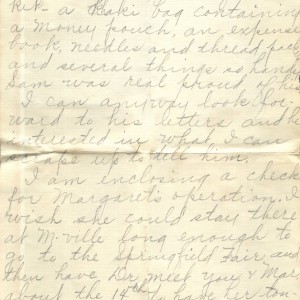 ket - a Kaki bag containing
a money pouch, an expense
book, needles and thread, pack
and several things as handy
Sam was real proud of his
I can anyway look for-
ward to his letters and be
interested in what I can
scrape up to tell him.
I am enclosing a check
for Margaret's operation. I
wish she could stay there
at M-ville long enough to
go to the Springfield Fair, and
then have Dr. meet you & Mar
about the 14th to have her ton-